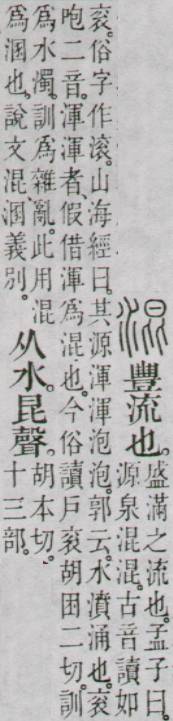 混 豐流也。盛滿之流也。孟子曰。
源泉混混。古音讀如
衮。俗字作滚。山海經曰。其源渾渾泡泡。郭云。水濆涌也。衮
咆二音。渾渾者。假借渾爲混也。今俗讀戶衮胡困二切。訓
爲水濁。訓爲雜亂。此用混
爲溷也。說文混溷義別。
从水昆聲。胡本切。
十三部。